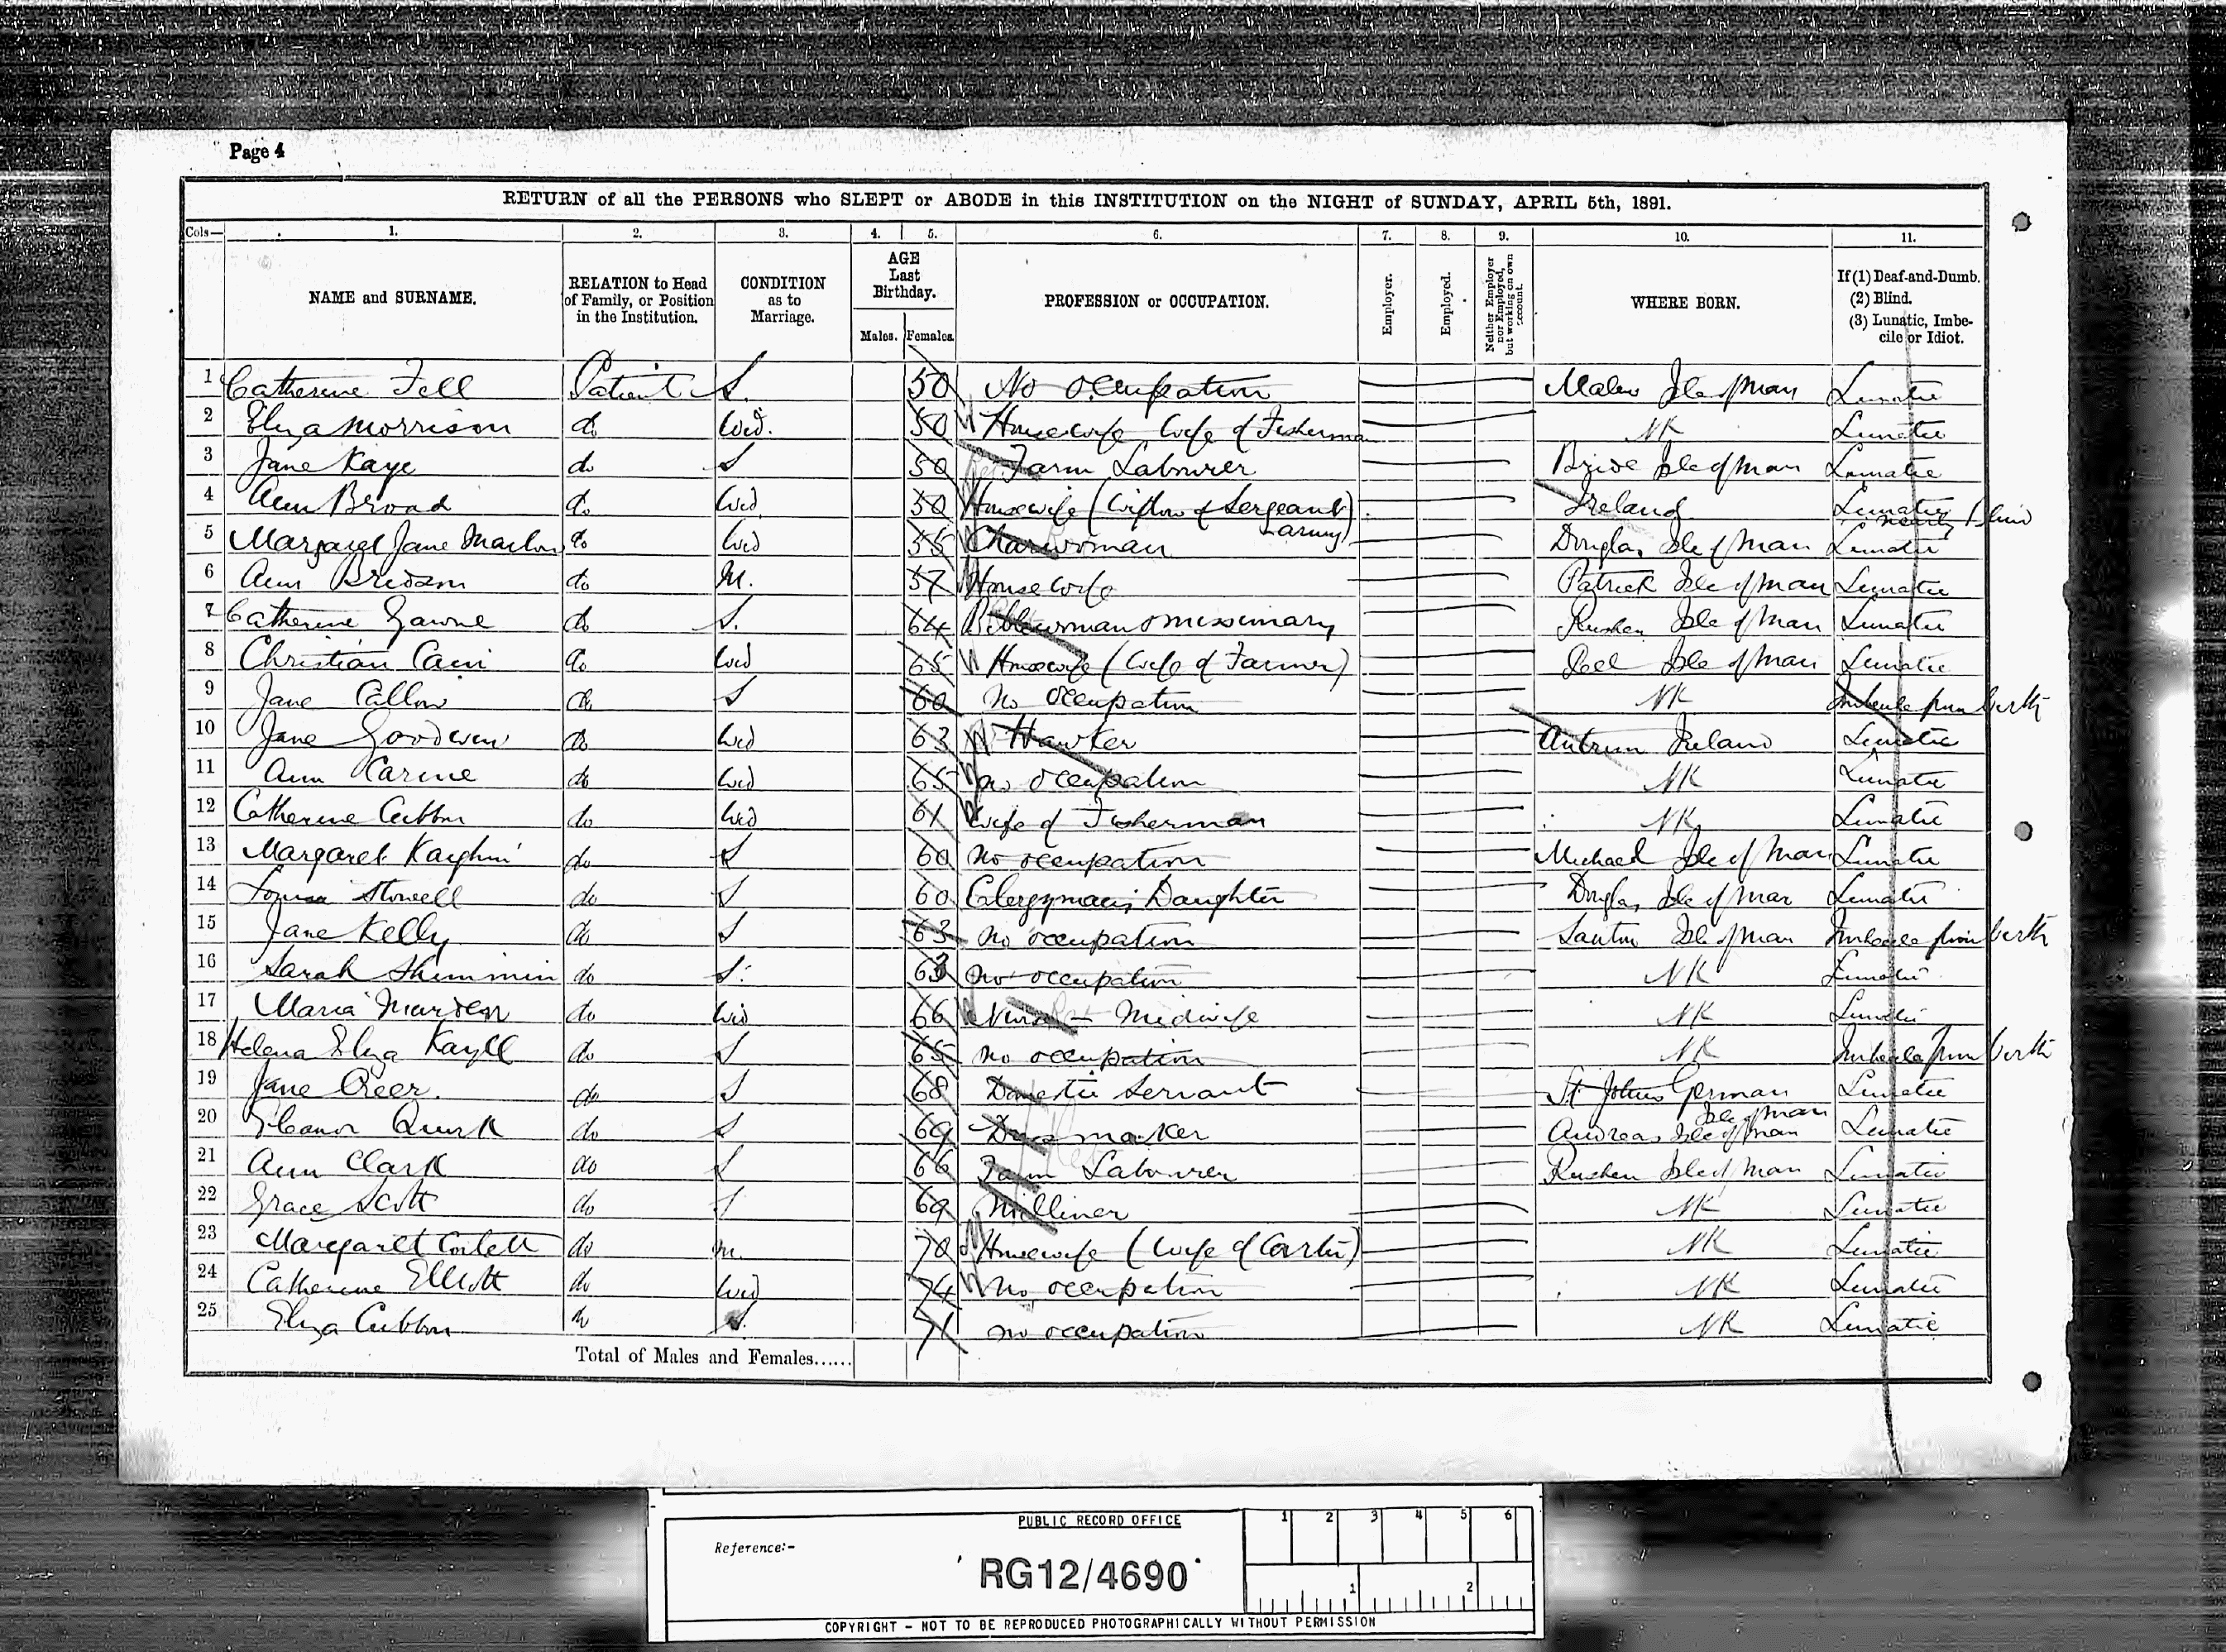 Page 4
RETURN of all the PERSONS who SLEPT or ABODE in this INSTITUTION on the NIGHT of SUNDAY, APRIL 5th, 1891.
Cols— 1. 2. 3. 4. 5. 6. 7. 8. 9. 10. 11.
NAME and SURNAME. RELATION to Head of Family, or Position in the Institution. CONDITION as to Marriage. AGE Last Birthday. Males. Females. PROFESSION or OCCUPATION. Employer. Employed. Neither Employer nor Employed, but working on own account. WHERE BORN. If (1) Deaf-and-Dumb. (2) Blind. (3) Lunatic, Imbecile or Idiot.
1 Catherine Fell Patient S. 50 No occupation Malew Isle of Man Lunatic
2 Eliza Morrison do Wed. 50 Housewife Wife of Fisherman NK Lunatic
3 Jane Kaye do S 50 Farm Labourer Bride Isle of Man Lunatic
4 Ann Broad do Wed 50 Housewife (Widow of Sergeant) army Ireland Lunatic nearly Blind
5 Margaret Jane do Wed 55 Charwoman Douglas Isle of Man Lunatic
6 Ann Bridson do M. 57 Housewife Patrick Isle of Man Lunatic
7 Catherine Gawne do S. 64 Biblewoman & missionary Rushen Isle of Man Lunatic
8 Christian Cain do Wed 65 Housewife (Wife of Farmer) Peel Isle of Man Lunatic
9 Jane Callow do S 60 no occupation NK Imbecile from birth
10 Jane Goodwin do Wed 63 Hawker Antrim Ireland Lunatic
11 Ann Carine do Wed 65 no occupation NK Lunatic
12 Catherine Cubbon do Wed 61 Wife of Fisherman NK Lunatic
13 Margaret Kaighin do S 60 no occupation Michael Isle of Man Lunatic
14 Louisa Stowell do S 60 Clergyman's Daughter Douglas Isle of Man Lunatic
15 Jane Kelly do S 63 no occupation Santon Isle of Man Imbecile from birth
16 Sarah Shimmin do S. 63 no occupation NK Lunatic
17 Maria do Wid 66 Nurse — Midwife NK Lunatic
18 Helena Eliza Kayll do S 65 no occupation NK Imbecile from birth
19 Jane Creer. do S 68 Domestic Servant St Johns German Isle of Man Lunatic
20 Eleanor Quirk do S 69 Dressmaker Andreas Isle of Man Lunatic
21 Ann Clark do S 66 Farm Labourer Rushen Isle of Man Lunatic
22 Grace Scott do S 69 Milliner NK Lunatic
23 Margaret Corlett do M. 70 Housewife (Wife of Carter) NK Lunatic
24 Catherine Elliott do Wed 74 no occupation NK Lunatic
25 Eliza Cubbon do S. 71 no occupation NK Lunatic
Total of Males and Females......
PUBLIC RECORD OFFICE
Reference:-
RG12/4690
1 2 3 4 5 6
1 2
COPYRIGHT - NOT TO BE REPRODUCED PHOTOGRAPHICALLY WITHOUT PERMISSION